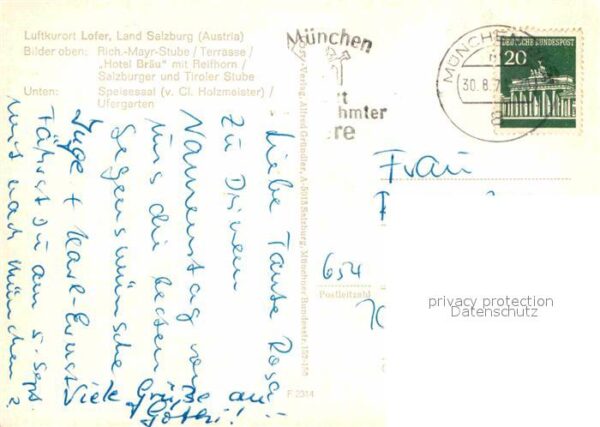 Luftkurort Lofer, Land Salzburg (Austria)
Bilder oben: Rich.-Mayr-Stube / Terrasse /
„Hotel Bräu“ mit Reifhorn /
Salzburger und Tiroler Stube
Unten: Speisesaal (v. Cl. Holzmeister) /
Ufergarten
München
t
hmter
re
MÜNCHEN
30.8.7
8
DEUTSCHE BUNDESPOST
20
Liebe Tante Rosa!
Zu Deinem
Namenstag von
uns die besten
Segenswünsche
Inge + Karl-Ernst
Fährst Du am 5. Sept
mit nach München?
Viele Grüße an
-Verlag, Alfred Gründler, A-5013 Salzburg, Münchner Bundesstr. 152-156
F 2314
Frau
654
Postleitzahl
privacy protection
Datenschutz